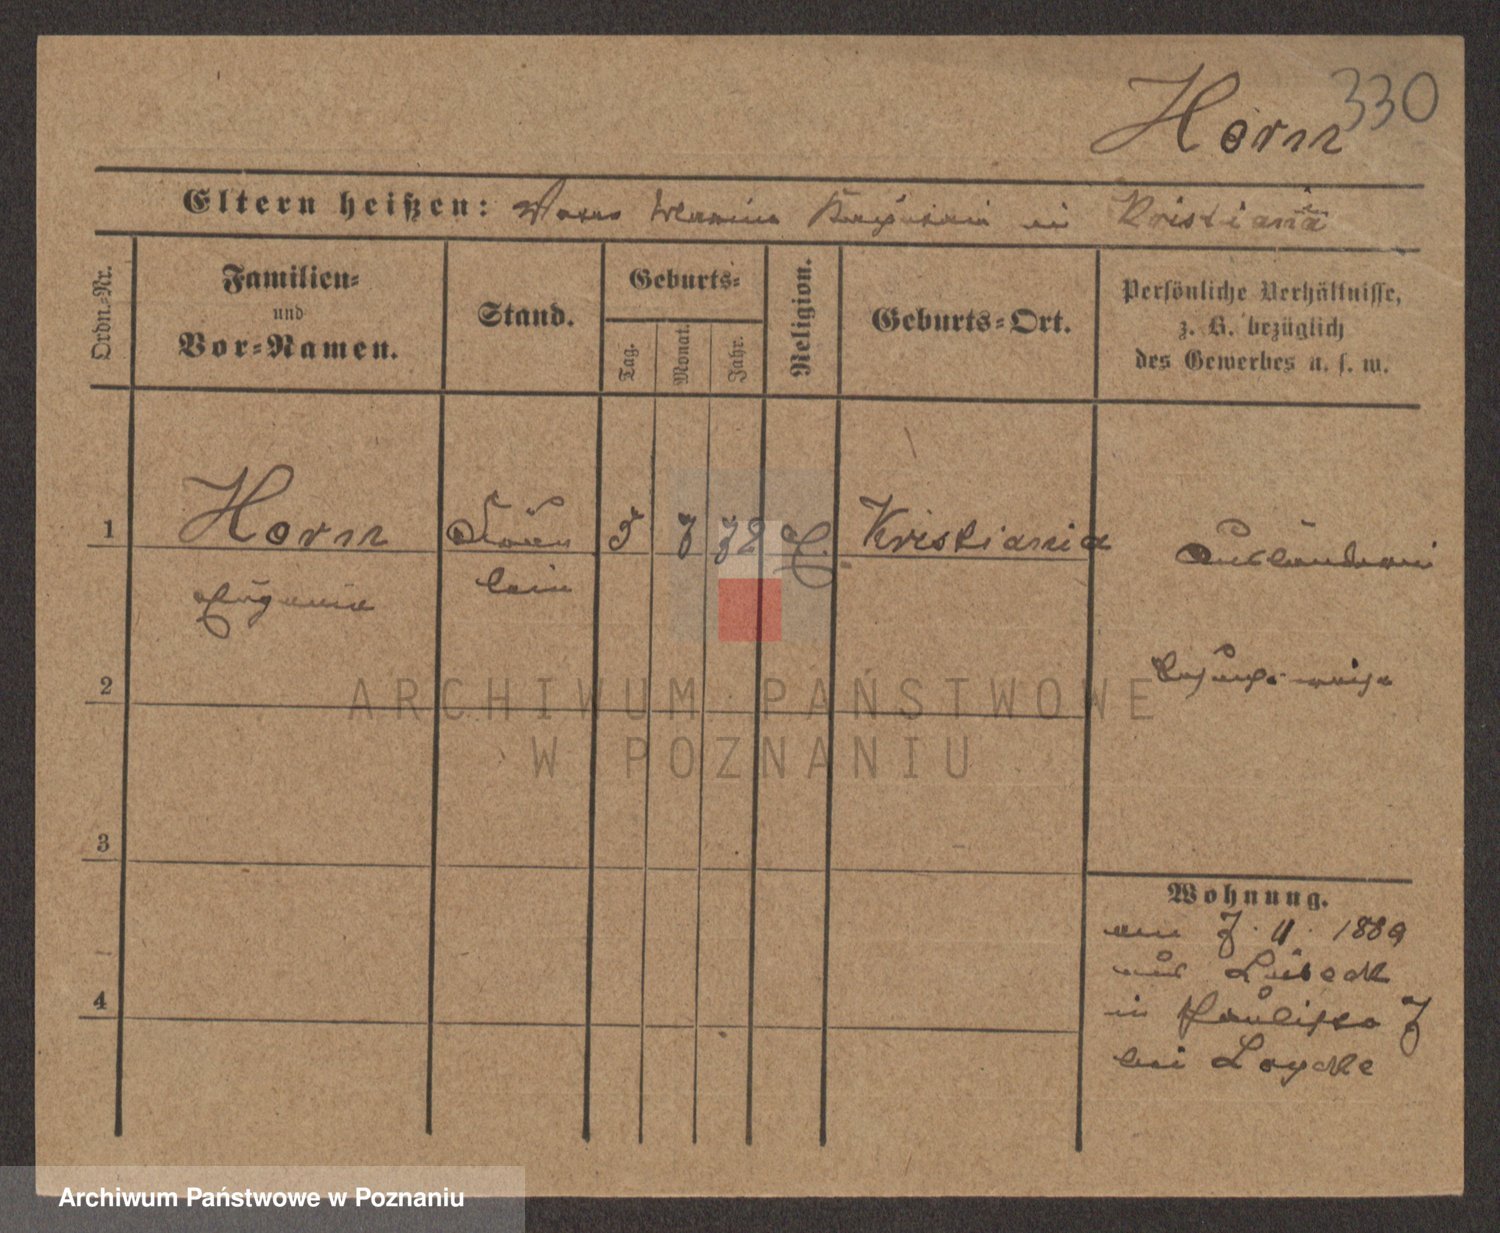 Horn 330
Eltern heißen: Vater Marine Kapitain in Kristiania
Ordn.-Nr.
Familien-
und
Vor-Namen.
Stand.
Geburts-
Tag.
Monat.
Jahr.
Religion.
Geburts-Ort.
Persönliche Verhältnisse,
z. B. bezüglich
des Gewerbes u. s. w.
1 Horn Fräu 5 7 72 E. Kristiania Ausländerin
Eugenie lein
2 besuchsweise
3
4
Wohnung.
am 7. 11. 1889
aus Lübeck
in Paulistr 7
bei
ARCHIWUM PAŃSTWOWE
W POZNANIU
Archiwum Państwowe w Poznaniu